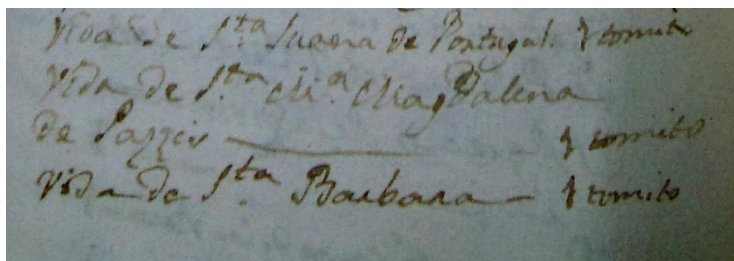 Vida de S.ta Juana de Portugal. 1 tomito
Vida de S.ta M.a Magdalena
de Pazzis — 1 tomito
Vida de S.ta Barbara — 1 tomito